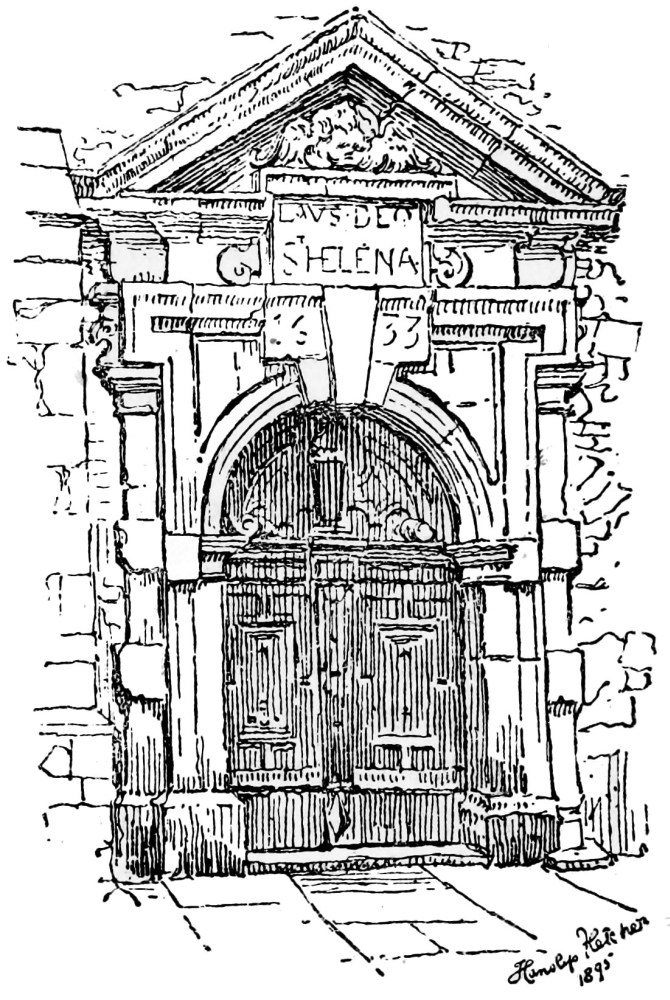 LAVS·DEO
ST HELENA
16 33
Hanslip Fletcher
1895